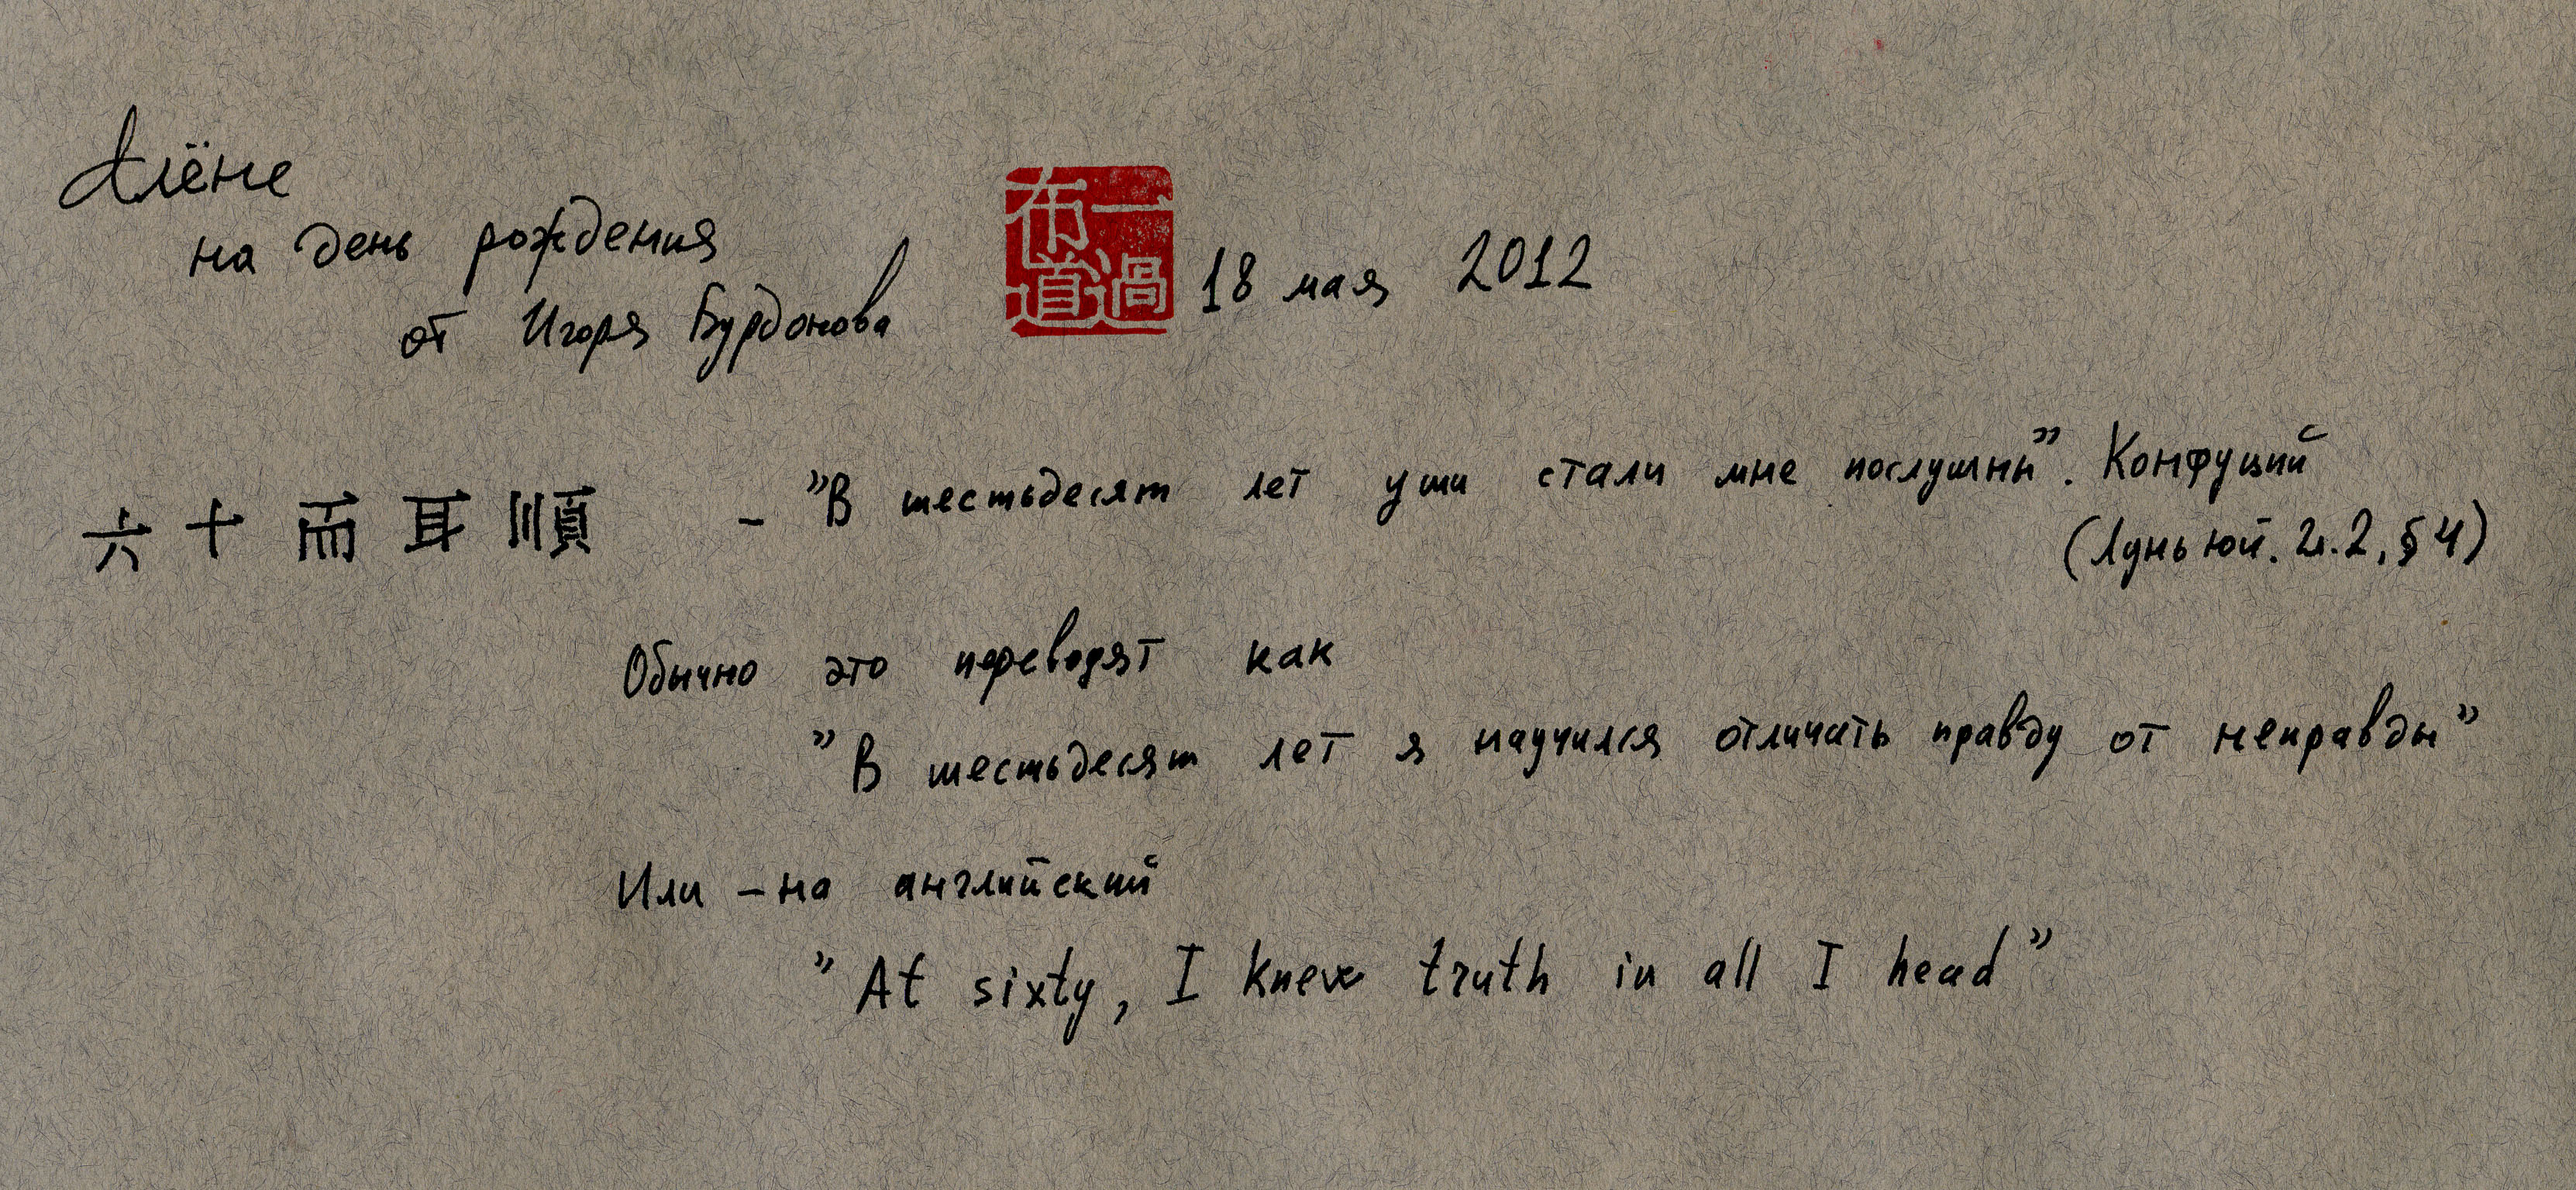 Алёне
на день рождения
от Игоря Бурдонова
一過布道
18 мая 2012
六十而耳順 – "В шестьдесят лет уши стали мне послушны". Конфуций
(Лунь юй. Гл. 2, § 4)
Обычно это переводят как
"В шестьдесят лет я научился отличать правду от неправды"
Или – на английский
"At sixty, I knew truth in all I head"